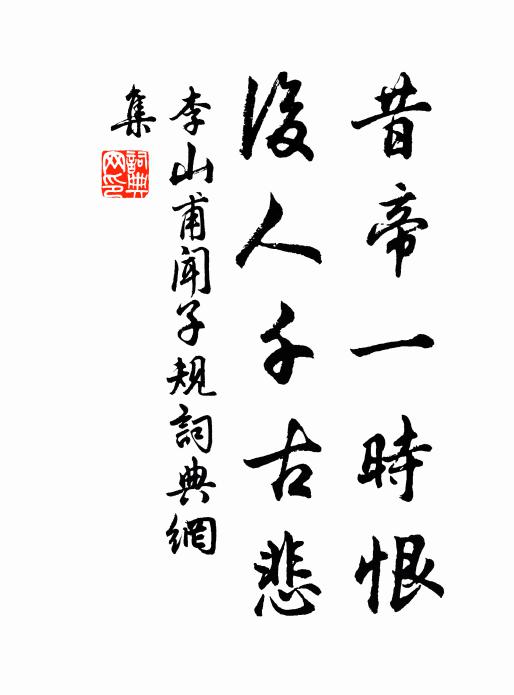 昔帝一時恨
後人千古悲
李山甫聞子規詞典網
集
詞典
网印